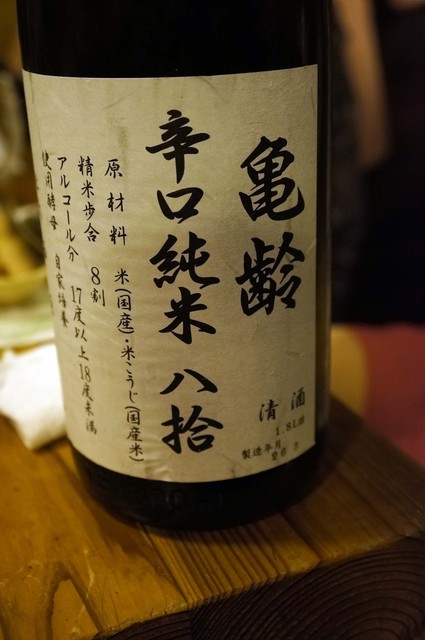 亀齢
辛口純米 八拾
原材料 米(国産)・米こうじ(国産米)
精米歩合 8割
アルコール分 17度以上18度未満
使用酵母 自家培養
清酒
1.8L詰
製造年月
26.7